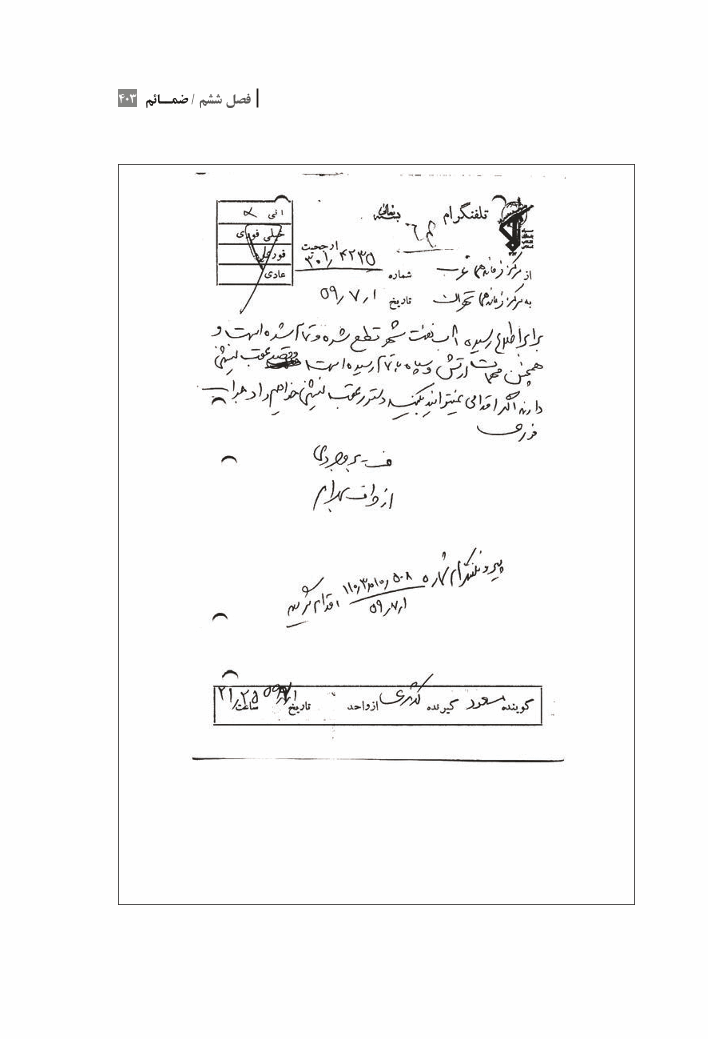 فصل ششم / ضمـــائم ۴۰۳
تلفنگرام
بسمه تعالی
آنی
خیلی فوری
فوری
عادی
ارجحیت
از مرکز فرماندهی غرب شماره ۳۰۱/۴۲۳۵
به مرکز فرماندهی تهران تاریخ ۵۹/۷/۱
برابر اطلاع رسیده آب نفت شهر قطع شده و تمام شده است و
همچنین مهمات ارتش و سپاه به اتمام رسیده است قصد عقب نشینی
دارند اگر اقدامی نمیتوانید بکنید دستور عقب نشینی خواهیم داد جواب
فوری
بروجردی
از طرف بهرام
پیرو تلفنگرام شماره
۵۹/۷/۱ اقدام
گوینده مسعود گیرنده از واحد تاریخ ۵۹/۷/۱ ساعت ۲۱/۲۵